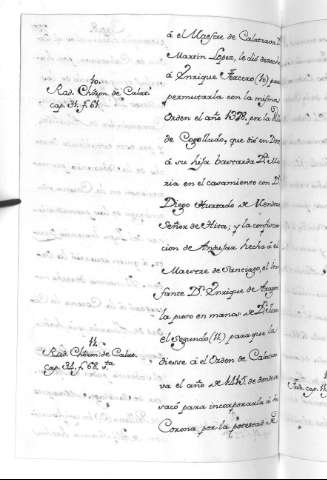 á el Maestre de Calatrava D.
Martin Lopez, le dió derecho
10.
Rad. Chron. de Calat.
cap. 31. f. 61.
á Enrique Tercero (10) para
permutarla con la misma
Orden el año 1398, por la Villa
de Cogolludo, que dió en Dote
á su hija bastarda Dª Ma
ria en el casamiento con D.
Diego Hurtado de Mendoza
Señor de Hita; y la confisca
cion de Andujar hecha á el
Maestre de Santiago, el In
fante Dn. Enrique de Aragon
la puso en manos de Dn. Juan
11.
Rad. Chron. de Calat.
cap. 34. f. 68.
el Segundo (11) para que la
diesse á el Orden de Calatra
va el año de 1445. de donde
vacó para incorporarla á la
Corona, por la potestad